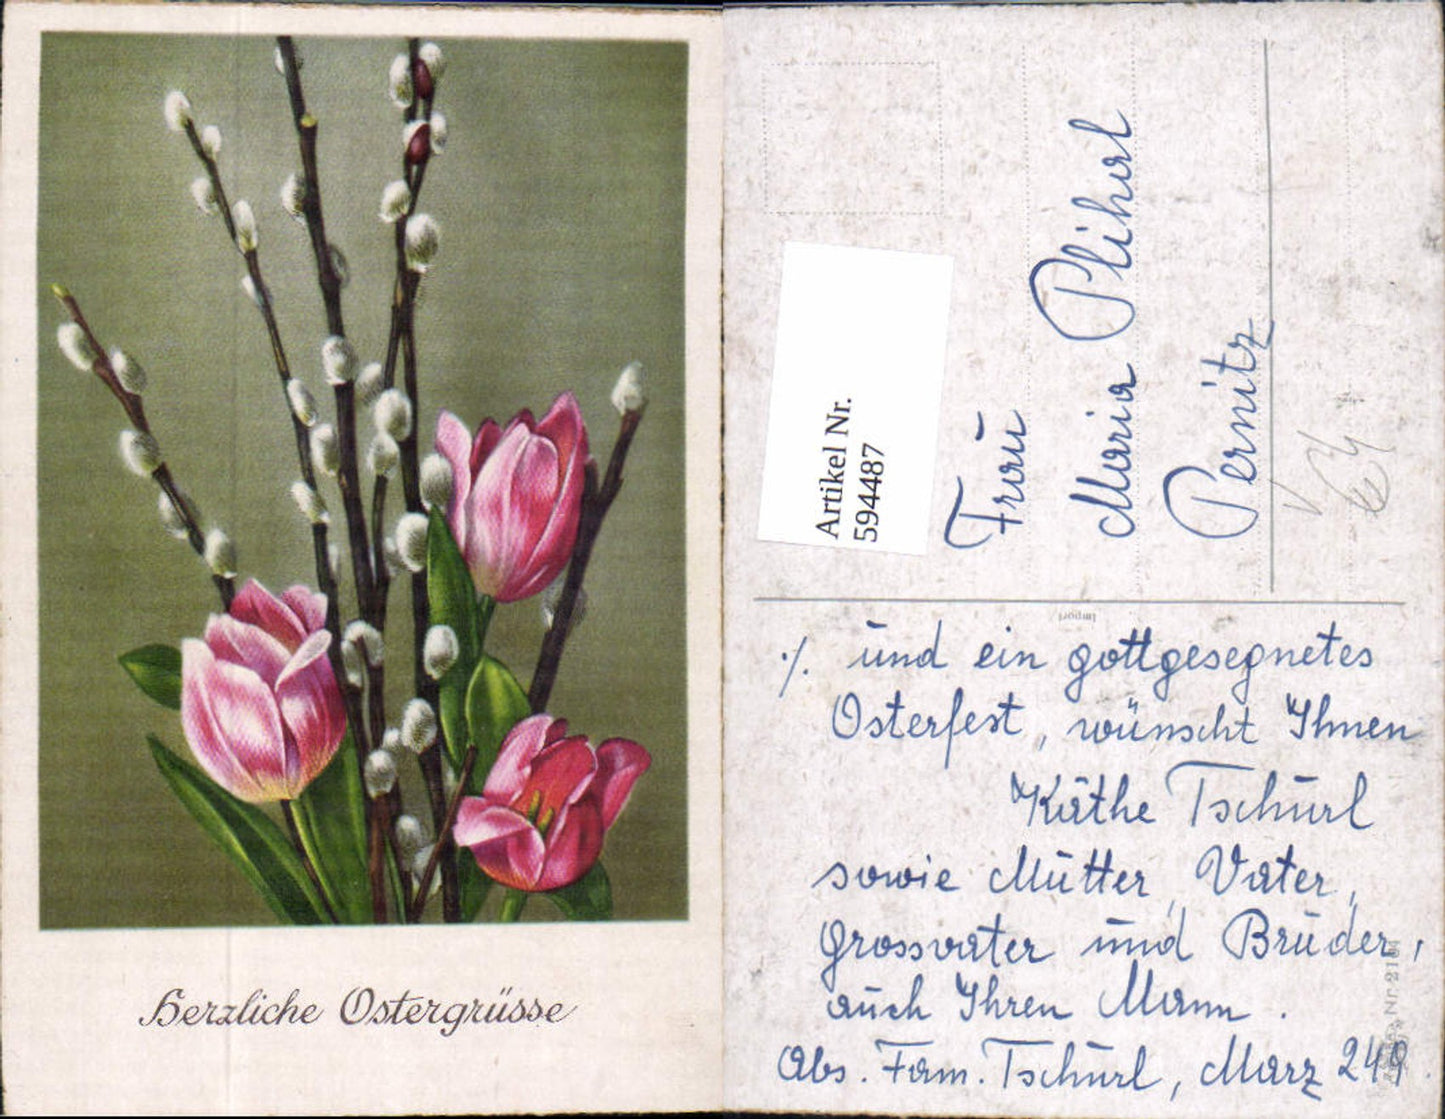 Herzliche Ostergrüsse
Artikel Nr.
594487
Frau
Maria Plihal
Pernitz
Import
./. und ein gottgesegnetes
Osterfest, wünscht Ihnen
Käthe Tschürl
sowie Mutter, Vater,
Grossvater und Bruder,
auch Ihren Mann.
Abs. Fam. Tschürl, Marz 249.
Nr. 2164